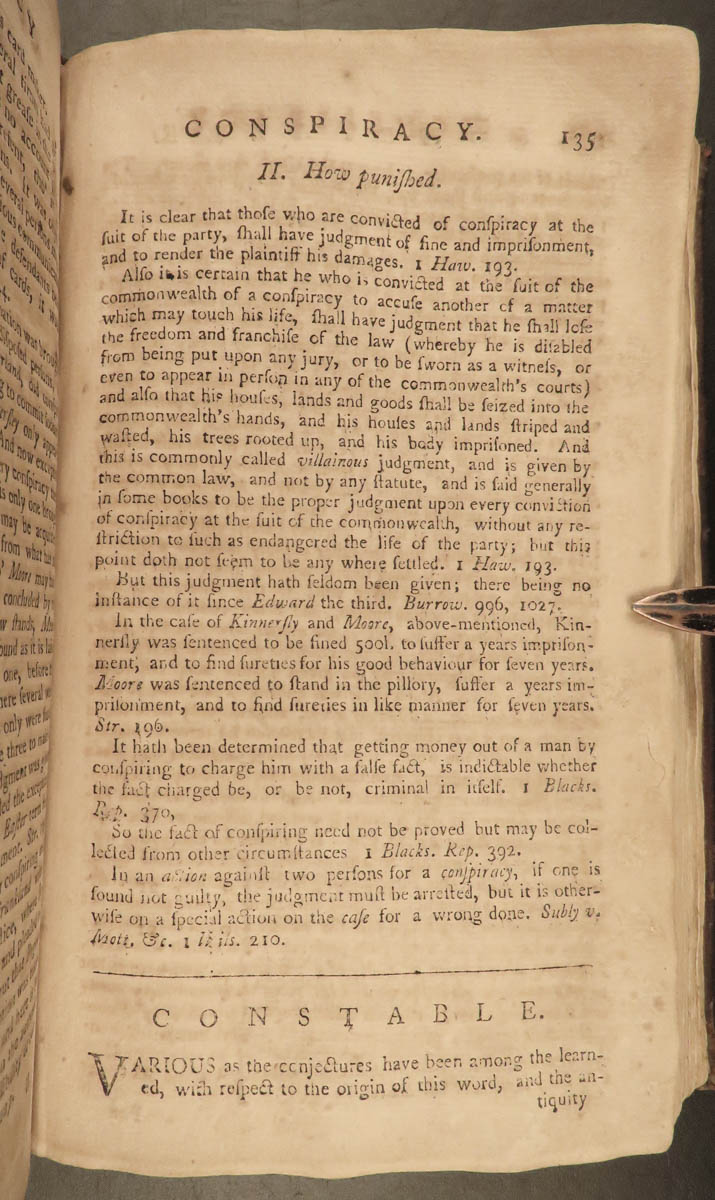 CONSPIRACY. 135
II. How puniſhed.
It is clear that thoſe who are convicted of conſpiracy at the
ſuit of the party, ſhall have judgment of fine and impriſonment,
and to render the plaintiff his damages. 1 Haw. 193.
Alſo it is certain that he who is convicted at the ſuit of the
commonwealth of a conſpiracy to accuſe another of a matter
which may touch his life, ſhall have judgment that he ſhall loſe
the freedom and franchiſe of the law (whereby he is diſabled
from being put upon any jury, or to be ſworn as a witneſs, or
even to appear in perſon in any of the commonwealth's courts)
and alſo that his houſes, lands and goods ſhall be ſeized into the
commonwealth's hands, and his houſes and lands ſtriped and
waſted, his trees rooted up, and his body impriſoned. And
this is commonly called villainous judgment, and is given by
the common law, and not by any ſtatute, and is ſaid generally
in ſome books to be the proper judgment upon every conviction
of conſpiracy at the ſuit of the commonwealth, without any re-
ſtriction to ſuch as endangered the life of the party; but this
point doth not ſeem to be any where ſettled. 1 Haw. 193.
But this judgment hath ſeldom been given; there being no
inſtance of it ſince Edward the third. Burrow. 996, 1027.
In the caſe of Kinnerſly and Moore, above-mentioned, Kin-
nerſly was ſentenced to be fined 500l. to ſuffer a years impriſon-
ment, and to find ſureties for his good behaviour for ſeven years.
Moore was ſentenced to ſtand in the pillory, ſuffer a years im-
priſonment, and to find ſureties in like manner for ſeven years.
Str. 196.
It hath been determined that getting money out of a man by
conſpiring to charge him with a falſe fact, is indictable whether
the fact charged be, or be not, criminal in itſelf. 1 Blacks.
Rep. 370,
So the fact of conſpiring need not be proved but may be col-
lected from other circumſtances 1 Blacks. Rep. 392.
In an action againſt two perſons for a conſpiracy, if one is
found not guilty, the judgment muſt be arreſted, but it is other-
wiſe on a ſpecial action on the caſe for a wrong done. Subly v.
Mott, &c. 1 Wils. 210.
CONSTABLE.
VARIOUS as the conjectures have been among the learn-
ed, with reſpect to the origin of this word, and the an-
tiquity